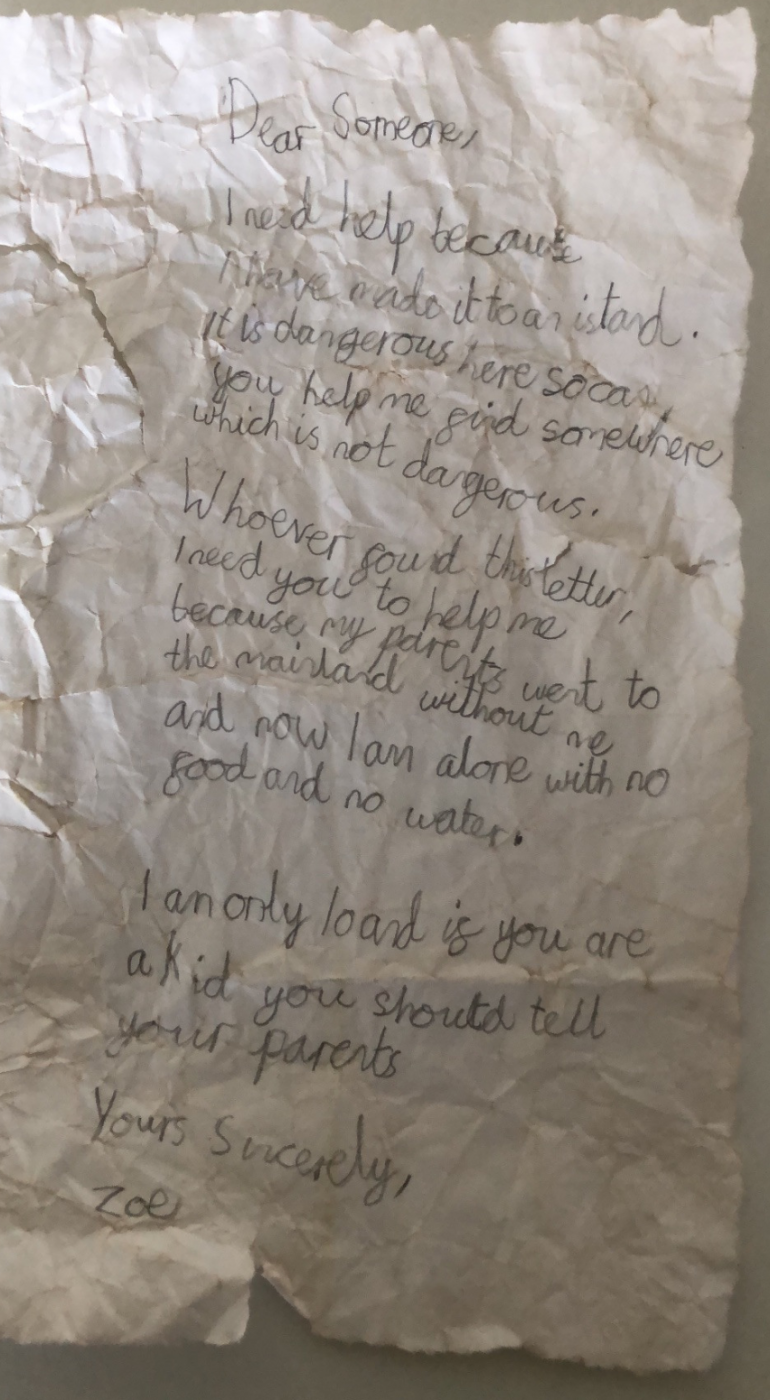 Dear Someone,
I need help because
I have made it to an island.
It is dangerous here so can
you help me find somewhere
which is not dangerous.
Whoever found this letter,
I need you to help me
because my parents went to
the mainland without me
and now I am alone with no
food and no water.
I am only 10 and if you are
a kid you should tell
your parents
Yours Sincerely,
Zoe